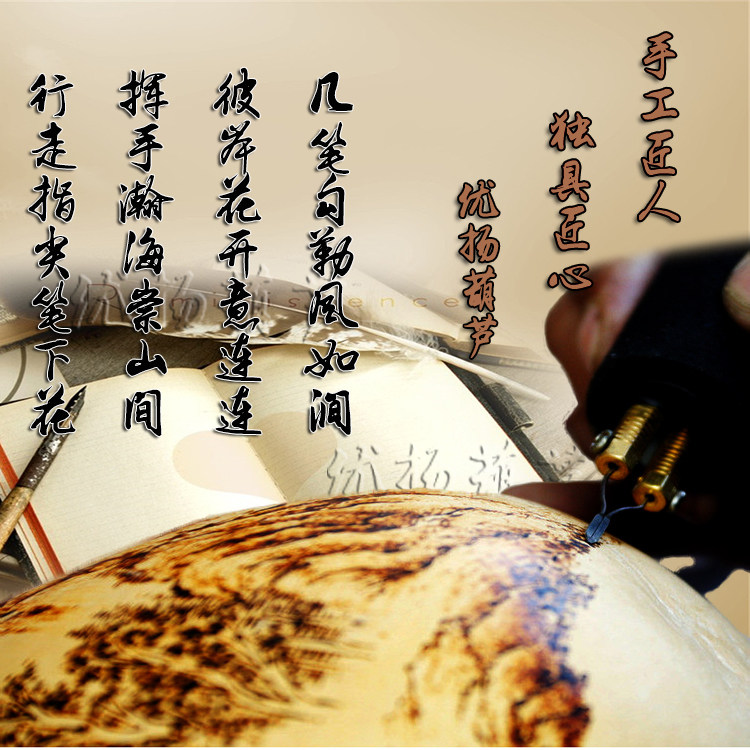 手工匠人
独具匠心
优扬葫芦
几笔勾勒风如涧
彼岸花开意连连
挥手瀚海崇山间
行走指尖笔下花
优扬葫芦
优扬葫芦